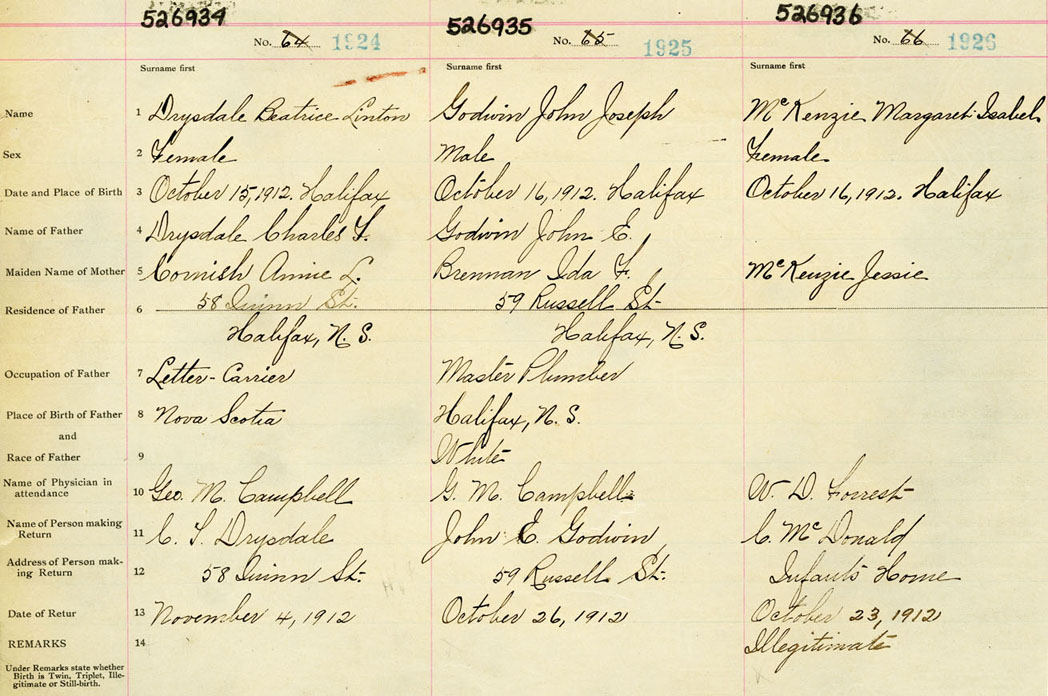 526934 526935 526936
No. 64 1924 No. 65 1925 No. 66 1926
Surname first Surname first Surname first
Name 1 Drysdale Beatrice Linton Godwin John Joseph McKenzie Margaret Isabel
Sex 2 Female Male Female
Date and Place of Birth 3 October 15, 1912. Halifax October 16, 1912. Halifax October 16, 1912. Halifax
Name of Father 4 Drysdale Charles F. Godwin John E.
Maiden Name of Mother 5 Cornish Annie L. Brennan Ida F. McKenzie Jessie
58 Quinn St. 59 Russell St.
Residence of Father 6
Halifax, N.S. Halifax, N.S.
Occupation of Father 7 Letter-Carrier Master Plumber
Place of Birth of Father 8 Nova Scotia Halifax, N.S.
and
Race of Father 9 White
Name of Physician in
attendance 10 Geo. M. Campbell G. M. Campbell W. D. Forrest
Name of Person making
Return 11 Drysdale John E. Godwin C. McDonald
Address of Person mak-
ing Return 12 58 Quinn St. 59 Russell St. Infants Home
Date of Retur 13 November 4, 1912 October 26, 1912 October 23, 1912
REMARKS 14 Illegitimate
Under Remarks state whether
Birth is Twin, Triplet, Ille-
gitimate or Still-birth.